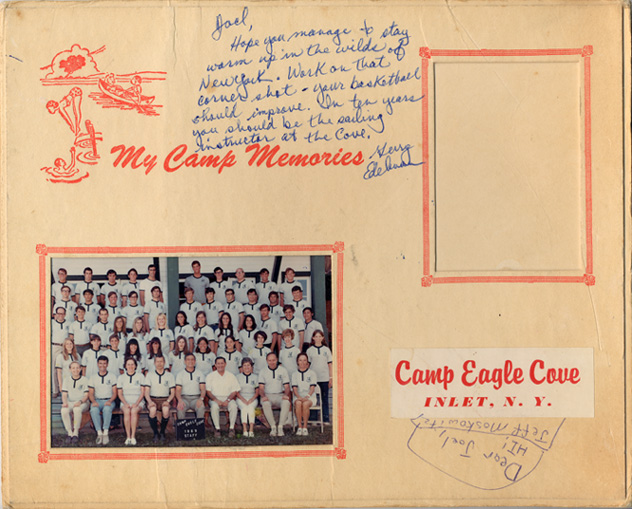 Joel,
Hope you manage to stay
warm up in the wilds of
New York. Work on that
corner shot - your basketball
should improve. In ten years
you should be the sailing
instructor at the Cove.
My Camp Memories
Camp Eagle Cove
INLET, N. Y.
Dear Joel,
HI!
Jeff Moskowitz
STAFF